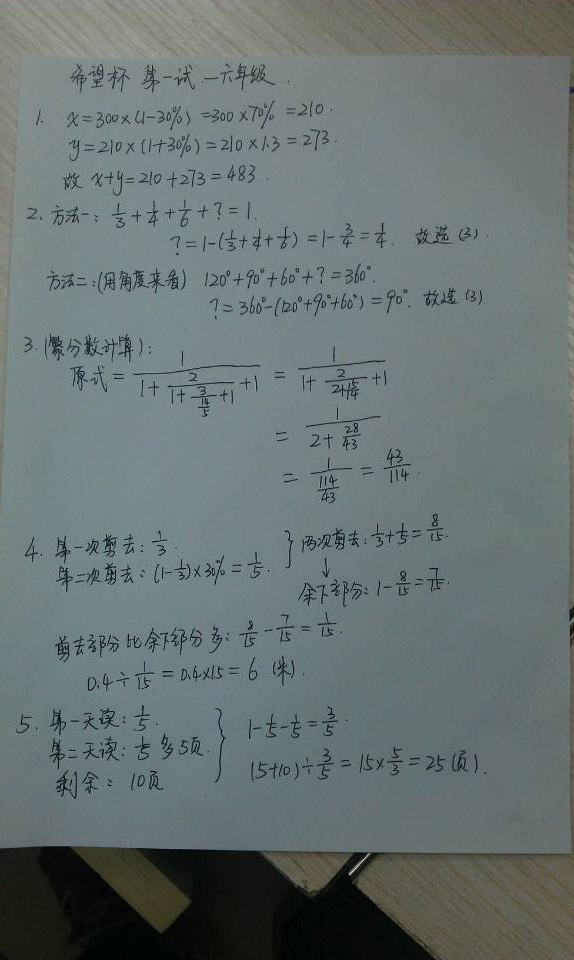 希望杯 第一试 — 六年级.
1. x=300×(1-30%)=300×70%=210.
y=210×(1+30%)=210×1.3=273.
故 x+y=210+273=483.
2. 方法一: 1/3+1/4+1/6+?=1.
?=1-(1/3+1/4+1/6)=1-3/4=1/4. 故选(3).
方法二:(用角度来看) 120°+90°+60°+?=360°.
?=360°-(120°+90°+60°)=90°. 故选(3)
3. (繁分数计算):
原式=1/(1+2/(1+3/(14/5)+1)+1)=1/(1+2/(2+15/14)+1)
=1/(2+28/43)
=1/(114/43)=43/114.
4. 第一次剪去: 1/3.
第二次剪去: (1-1/3)×30%=1/5.
} 两次剪去: 1/3+1/5=8/15.
↓
余下部分: 1-8/15=7/15.
剪去部分比余下部分多: 8/15-7/15=1/15.
0.4÷1/15=0.4×15=6 (米).
5. 第一天读: 1/5.
第二天读: 1/5多5页.
剩余: 10页
} 1-1/5-1/5=3/5.
(5+10)÷3/5=15×5/3=25(页).